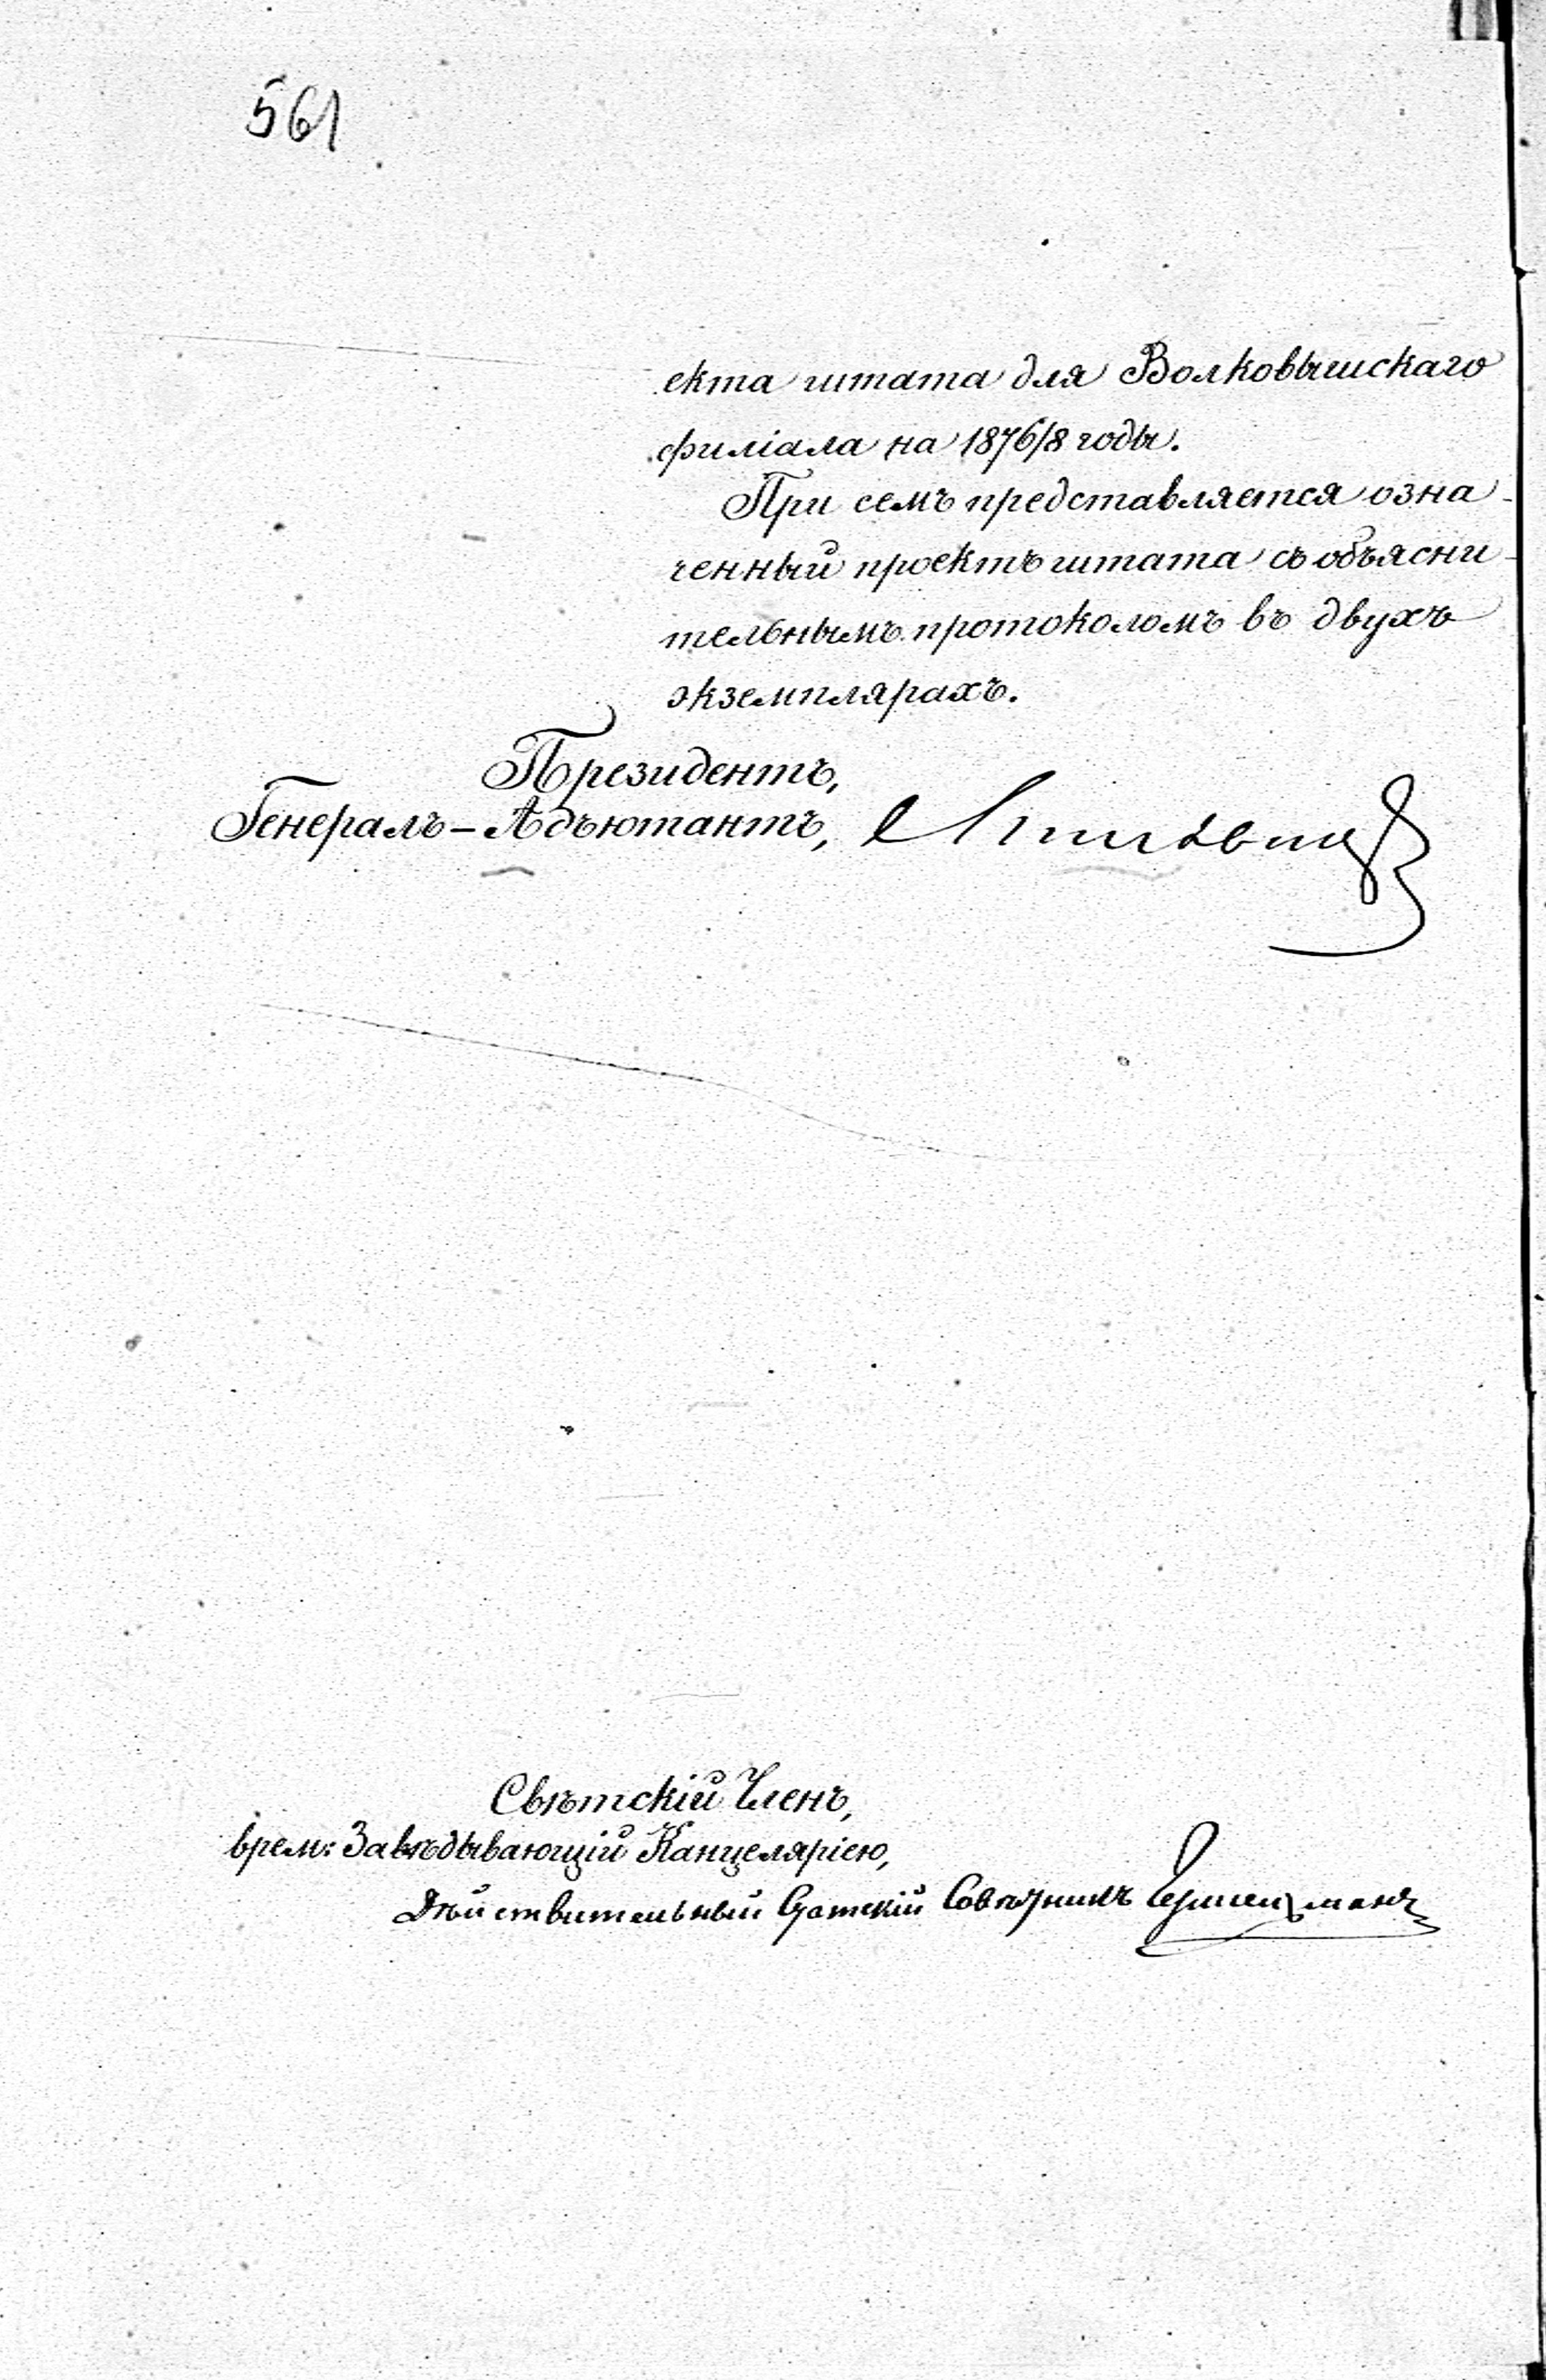 561
екта штата для Волковышскаго
филіала на 1876/8 годы.
При семъ представляется озна-
ченный проектъ штата съ объясни-
тельнымъ протоколомъ въ двухъ
экземплярахъ.
Президентъ,
Генералъ-Адъютантъ,
Свѣтскій Членъ,
врем: Завѣдывающій Канцеляріею,
Дѣйствительный Статскій Совѣтникъ